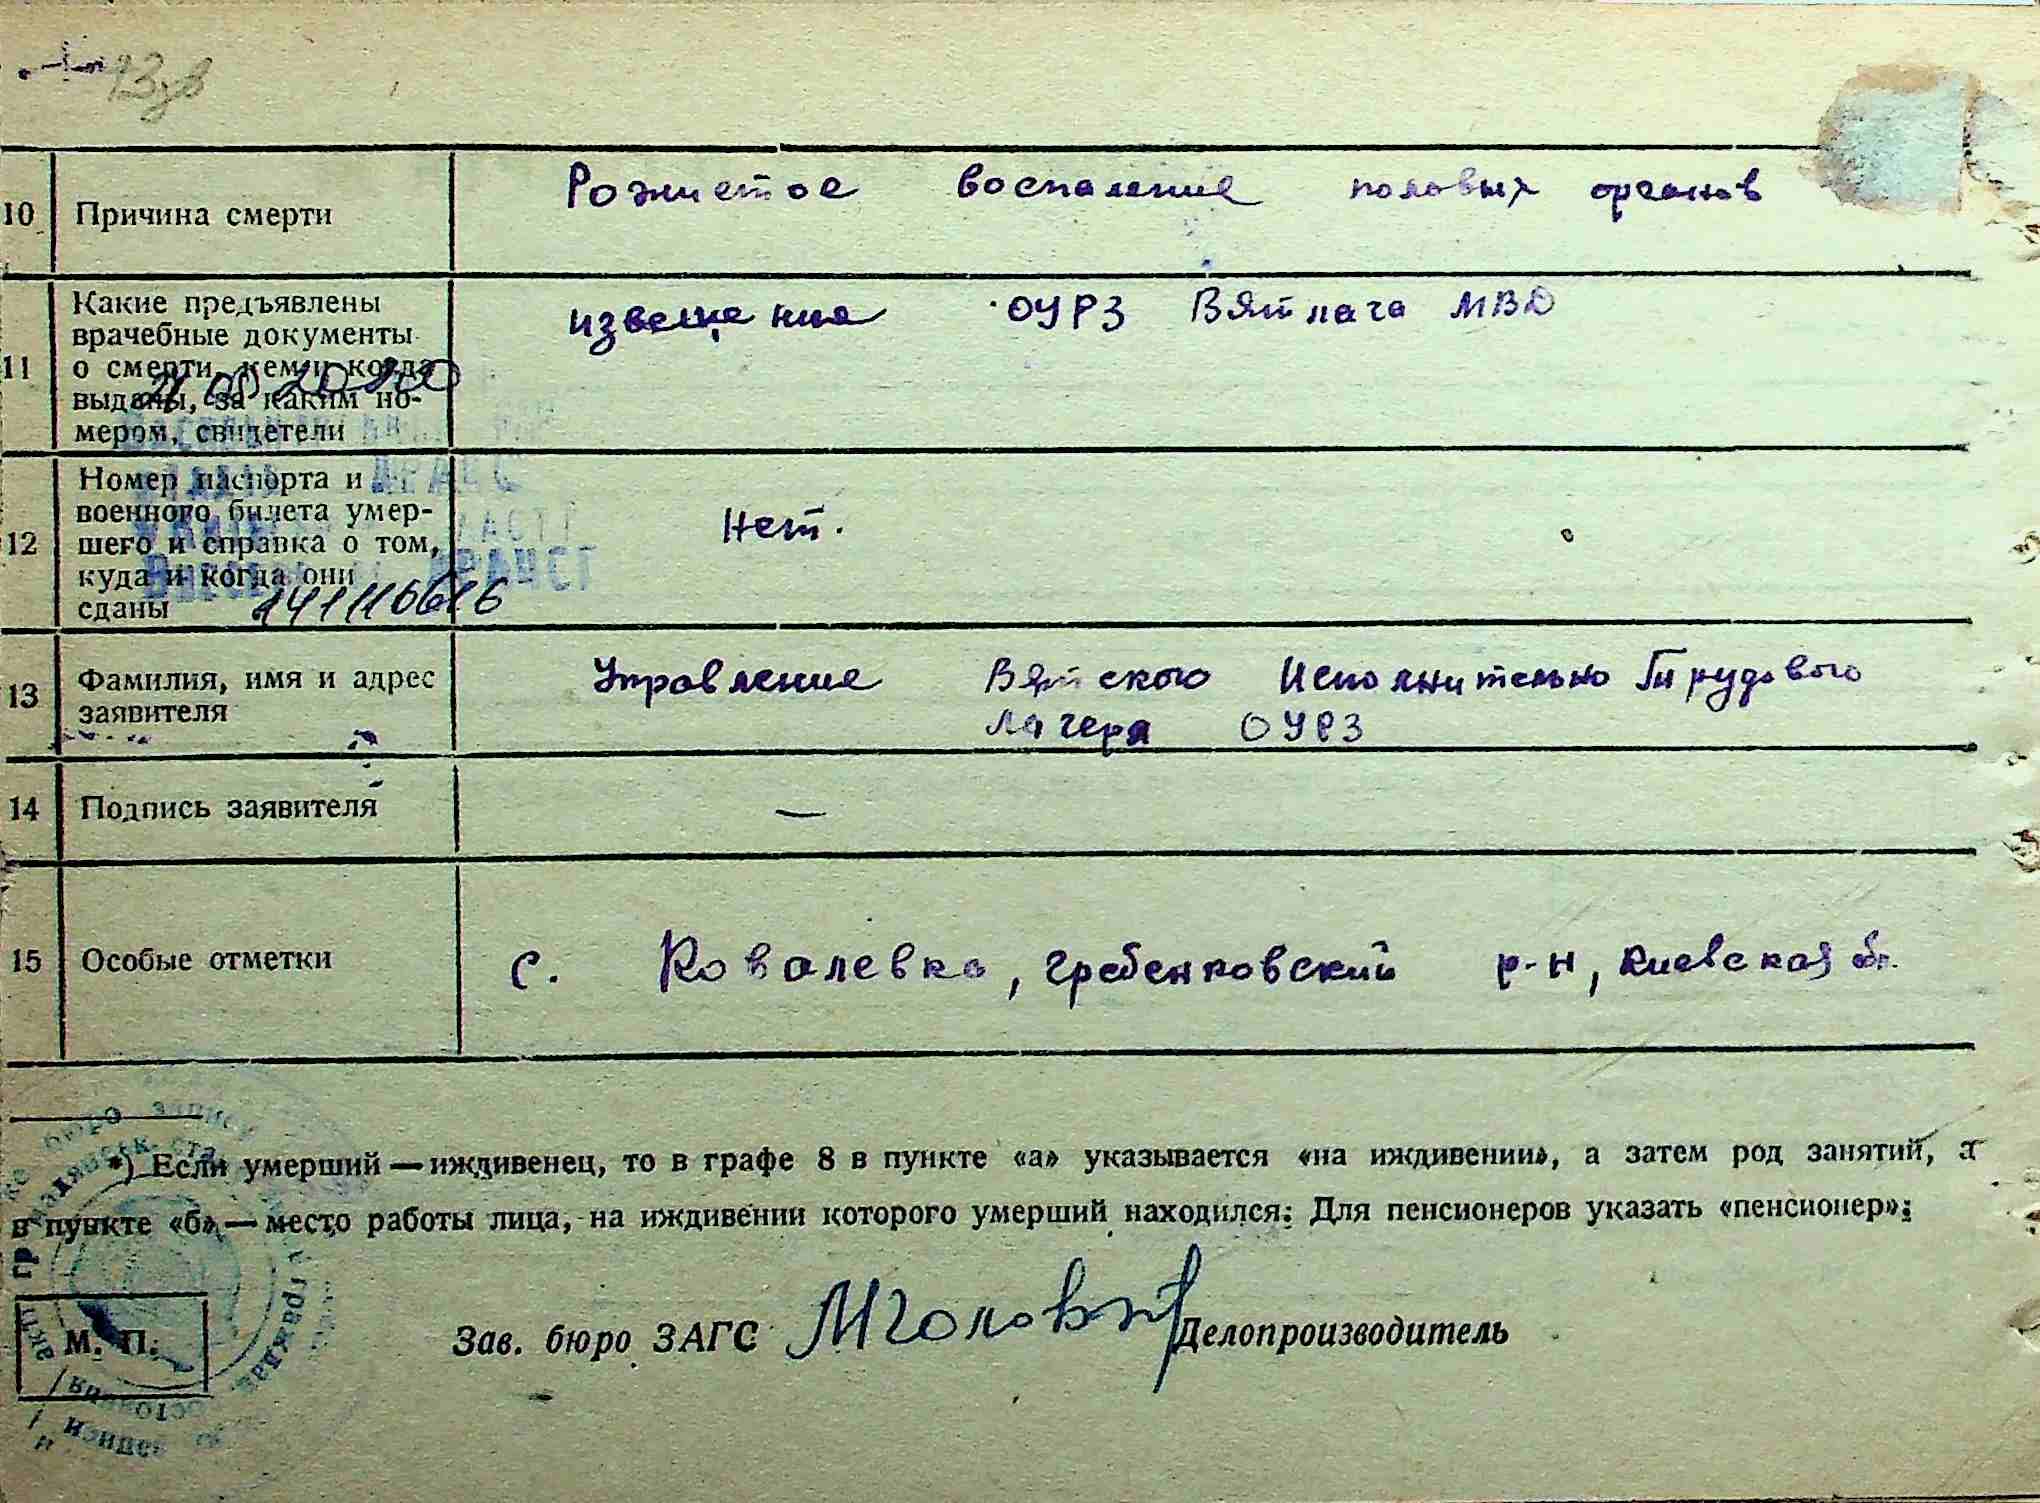 10 Причина смерти Рожистое воспаление половых органов
11 Какие предъявлены извещение ОУРЗ Вятлага МВД
врачебные документы
о смерти, кем и когда
выданы, за каким но-
мером, свидетели
Номер паспорта и
военного билета умер-
12 шего и справка о том, Нет.
куда и когда они
сданы 141116616
13 Фамилия, имя и адрес Управление Вятского Исполнительно Трудового
заявителя лагеря ОУРЗ
14 Подпись заявителя —
15 Особые отметки с. Ковалевка, Гребенковский р-н, Киевская обл.
*) Если умерший — иждивенец, то в графе 8 в пункте «а» указывается «на иждивении», а затем род занятий, а
в пункте «б» — место работы лица, на иждивении которого умерший находился: Для пенсионеров указать «пенсионер»;
М. П. Зав. бюро ЗАГС Делопроизводитель